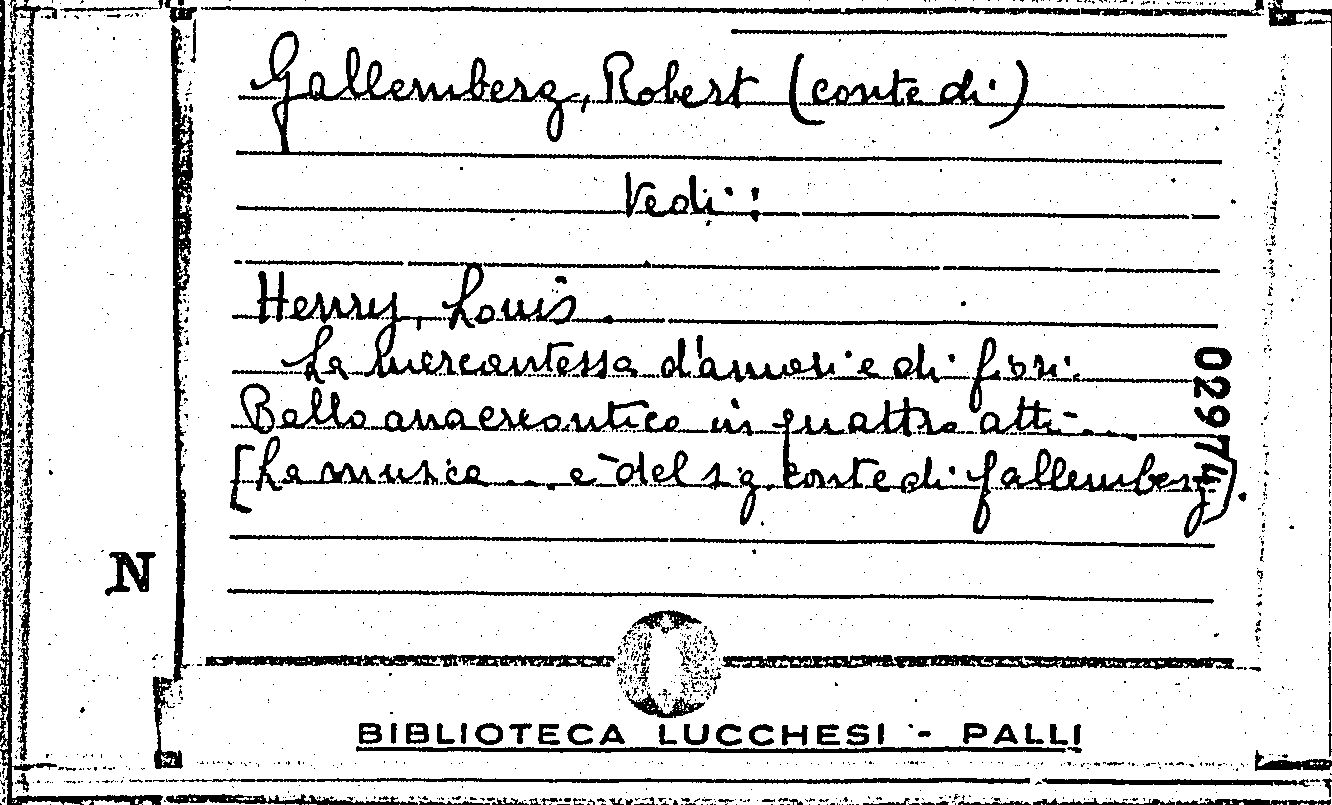 Gallemberg, Robert (conte di)
Vedi:
Henry, Louis.
La mercantessa d'amori e di fiori.
Ballo anacreontico in quattro atti...
[La musica ... è del sig. conte di Gallemberg].
02974
N
BIBLIOTECA LUCCHESI - PALLI